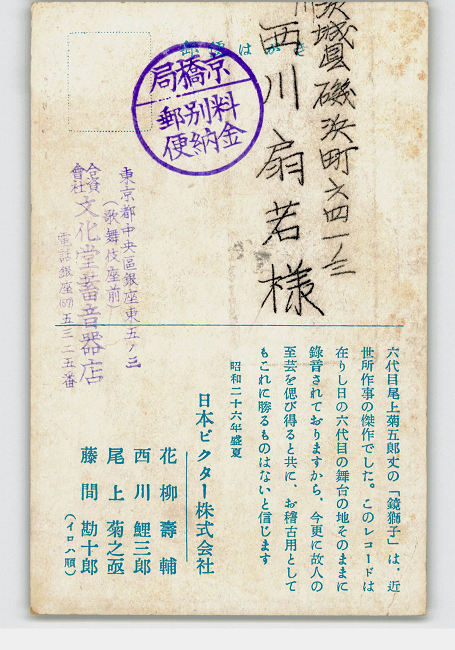 郵便はがき
茨城縣磯浜町六四一ノ三
西川扇若様
京橋局
料金別納郵便
東京都中央區銀座東五ノ三
(歌舞伎座前)
合資會社 文化堂蓄音器店
電話銀座(57)五三二五番
六代目尾上菊五郎丈の「鏡獅子」は、近
世所作事の傑作でした。このレコードは
在りし日の六代目の舞台の地そのままに
錄音されておりますから、今更に故人の
至芸を偲び得ると共に、お稽古用として
もこれに勝るものはないと信じます
昭和二十六年盛夏
日本ビクター株式会社
花柳壽輔
西川鯉三郎
尾上菊之亟
藤間勘十郎
(イロハ順)